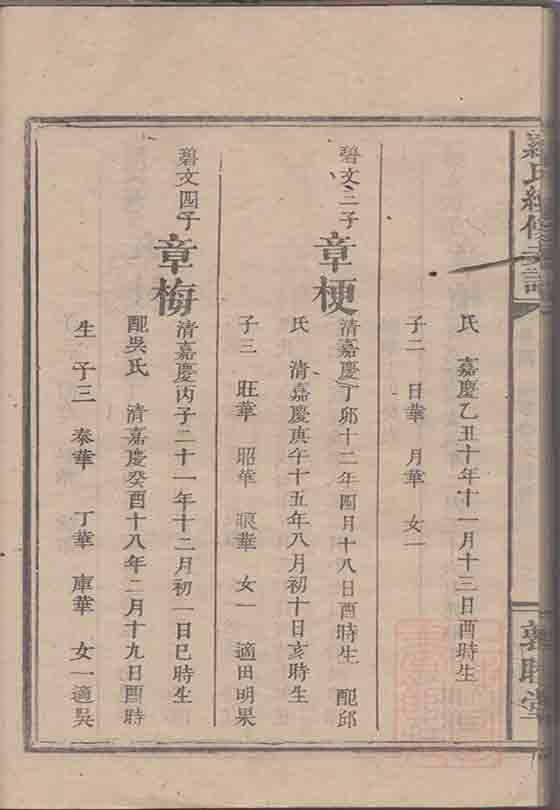 氏續修支譜
敦睦堂
氏 嘉慶乙丑十年十一月十三日酉時生
子二 日華 月華 女一
碧文三子
章梗
清嘉慶丁卯十二年四月十八日酉時生 配邱
氏 清嘉慶庚午十五年八月初十日亥時生
子三 旺華 昭華 華 女一 適田明果
碧文四子
章梅
清嘉慶丙子二十一年十二月初一日巳時生
配吳氏 清嘉慶癸酉十八年二月十九日酉時
生 子三 泰華 丁華 庫華 女一適吳